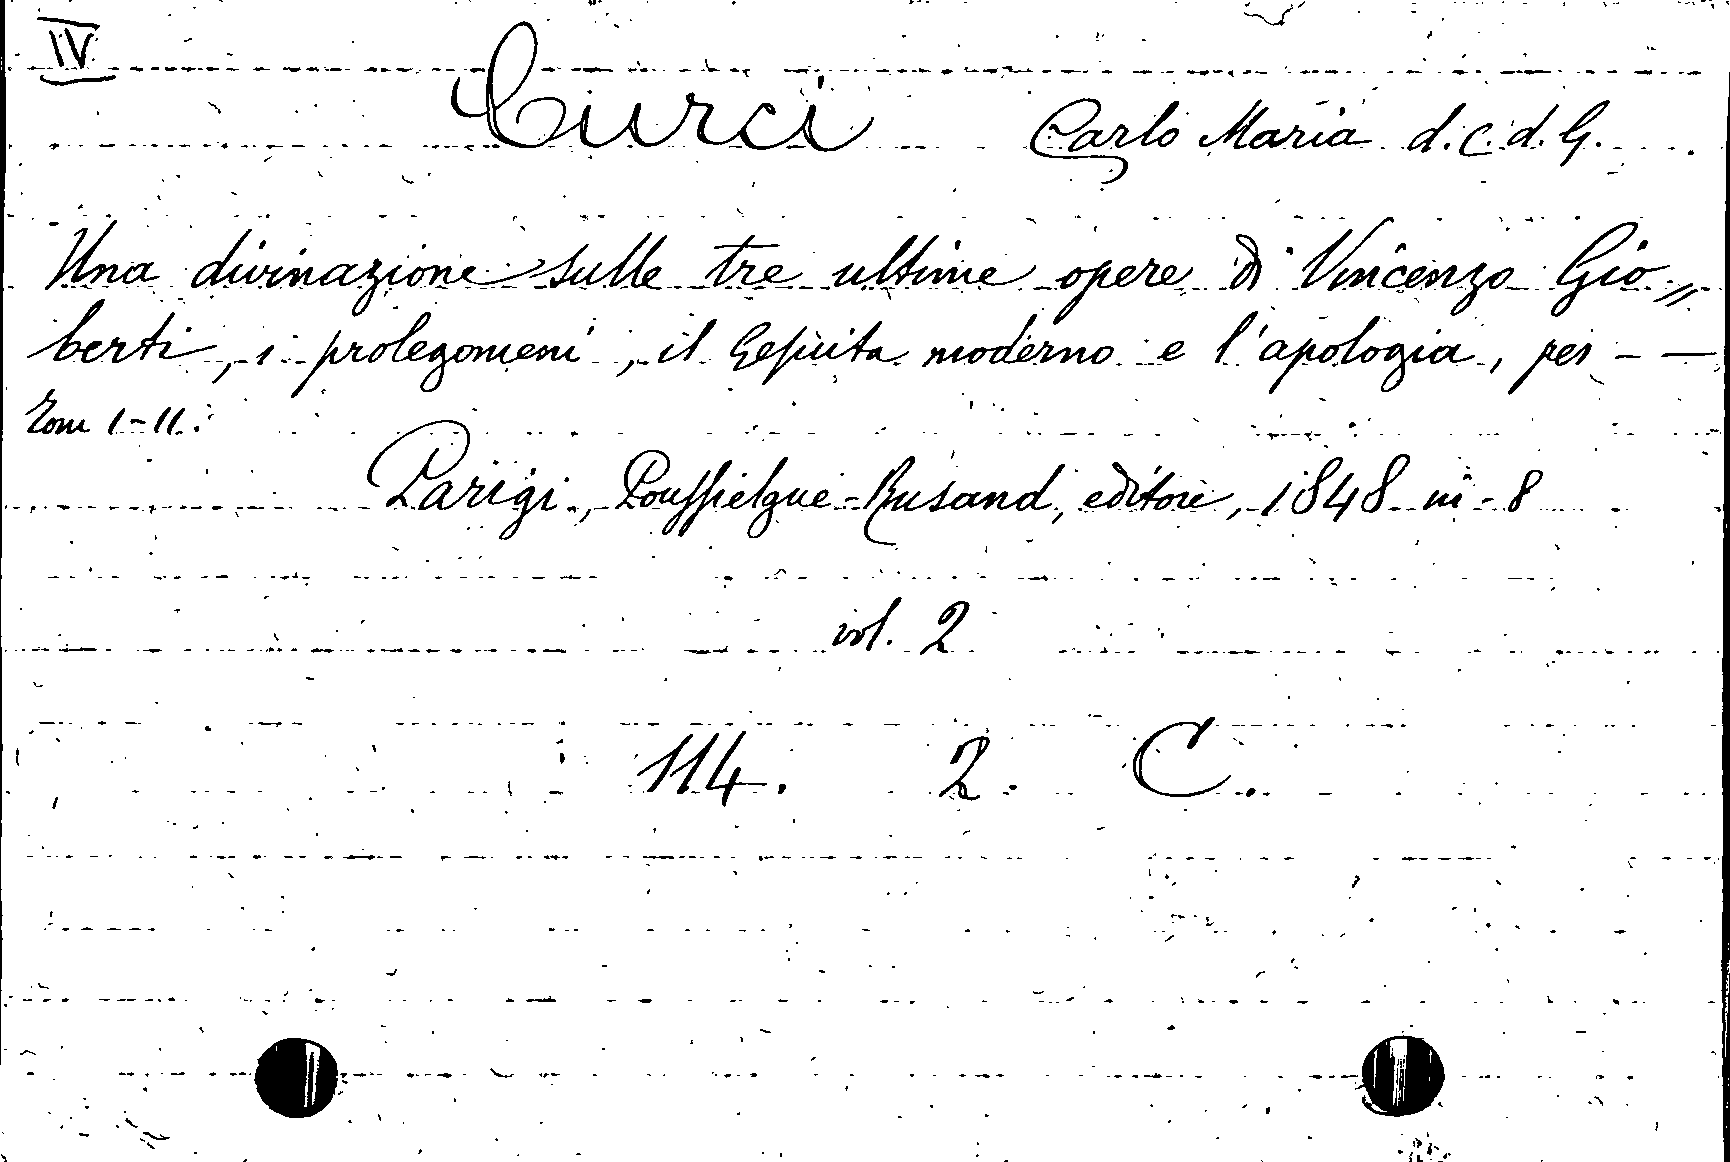 IV
Curci Carlo Maria d. C. d. G.
Una divinazione sulle tre ultime opere di Vincenzo Gio„
berti, i prolegomeni, il Gesuita moderno e l'apologia, per - —
Tom I-II.
Parigi, Poussielgue-Rusand, editore, 1848 in-8
vol. 2
114. 2. C.